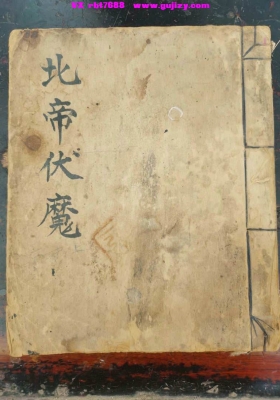 北帝伏魔
www.gujizy.com